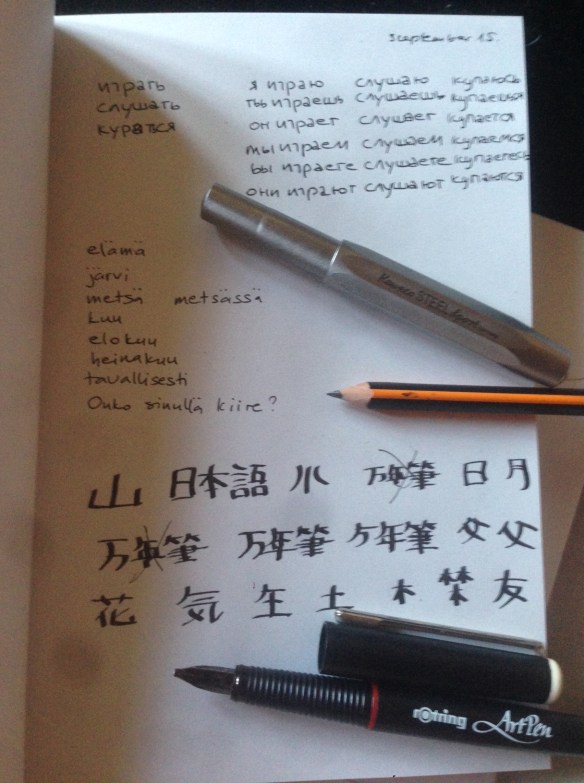 september 15.
играть я играю слушаю купаюсь
слушать ты играешь слушаешь купаешься
кураться он играет слушает купается
мы играем слушаем купаемся
вы играете слушаете купаетесь
они играют слушают купаются
elämä
järvi
metsä metsässä
kuu
elokuu
heinäkuu
tavallisesti
Onko sinulla kiire?
Kaweco STEEL Sport
山 日本語 小 万年筆 日 月
万年筆 万年筆 万年筆 父 父
花 気 生 土 木 友
rotring ArtPen